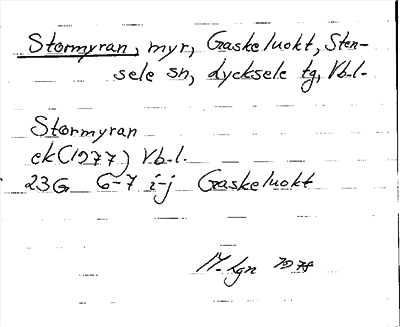 Stormyran, myr, Gaskeluokt, Sten-
sele sn, Lycksele tg, Vb.l.
Stormyran
ek (1277) Vb.l.
23G 6-7 i-j Gaskeluokt